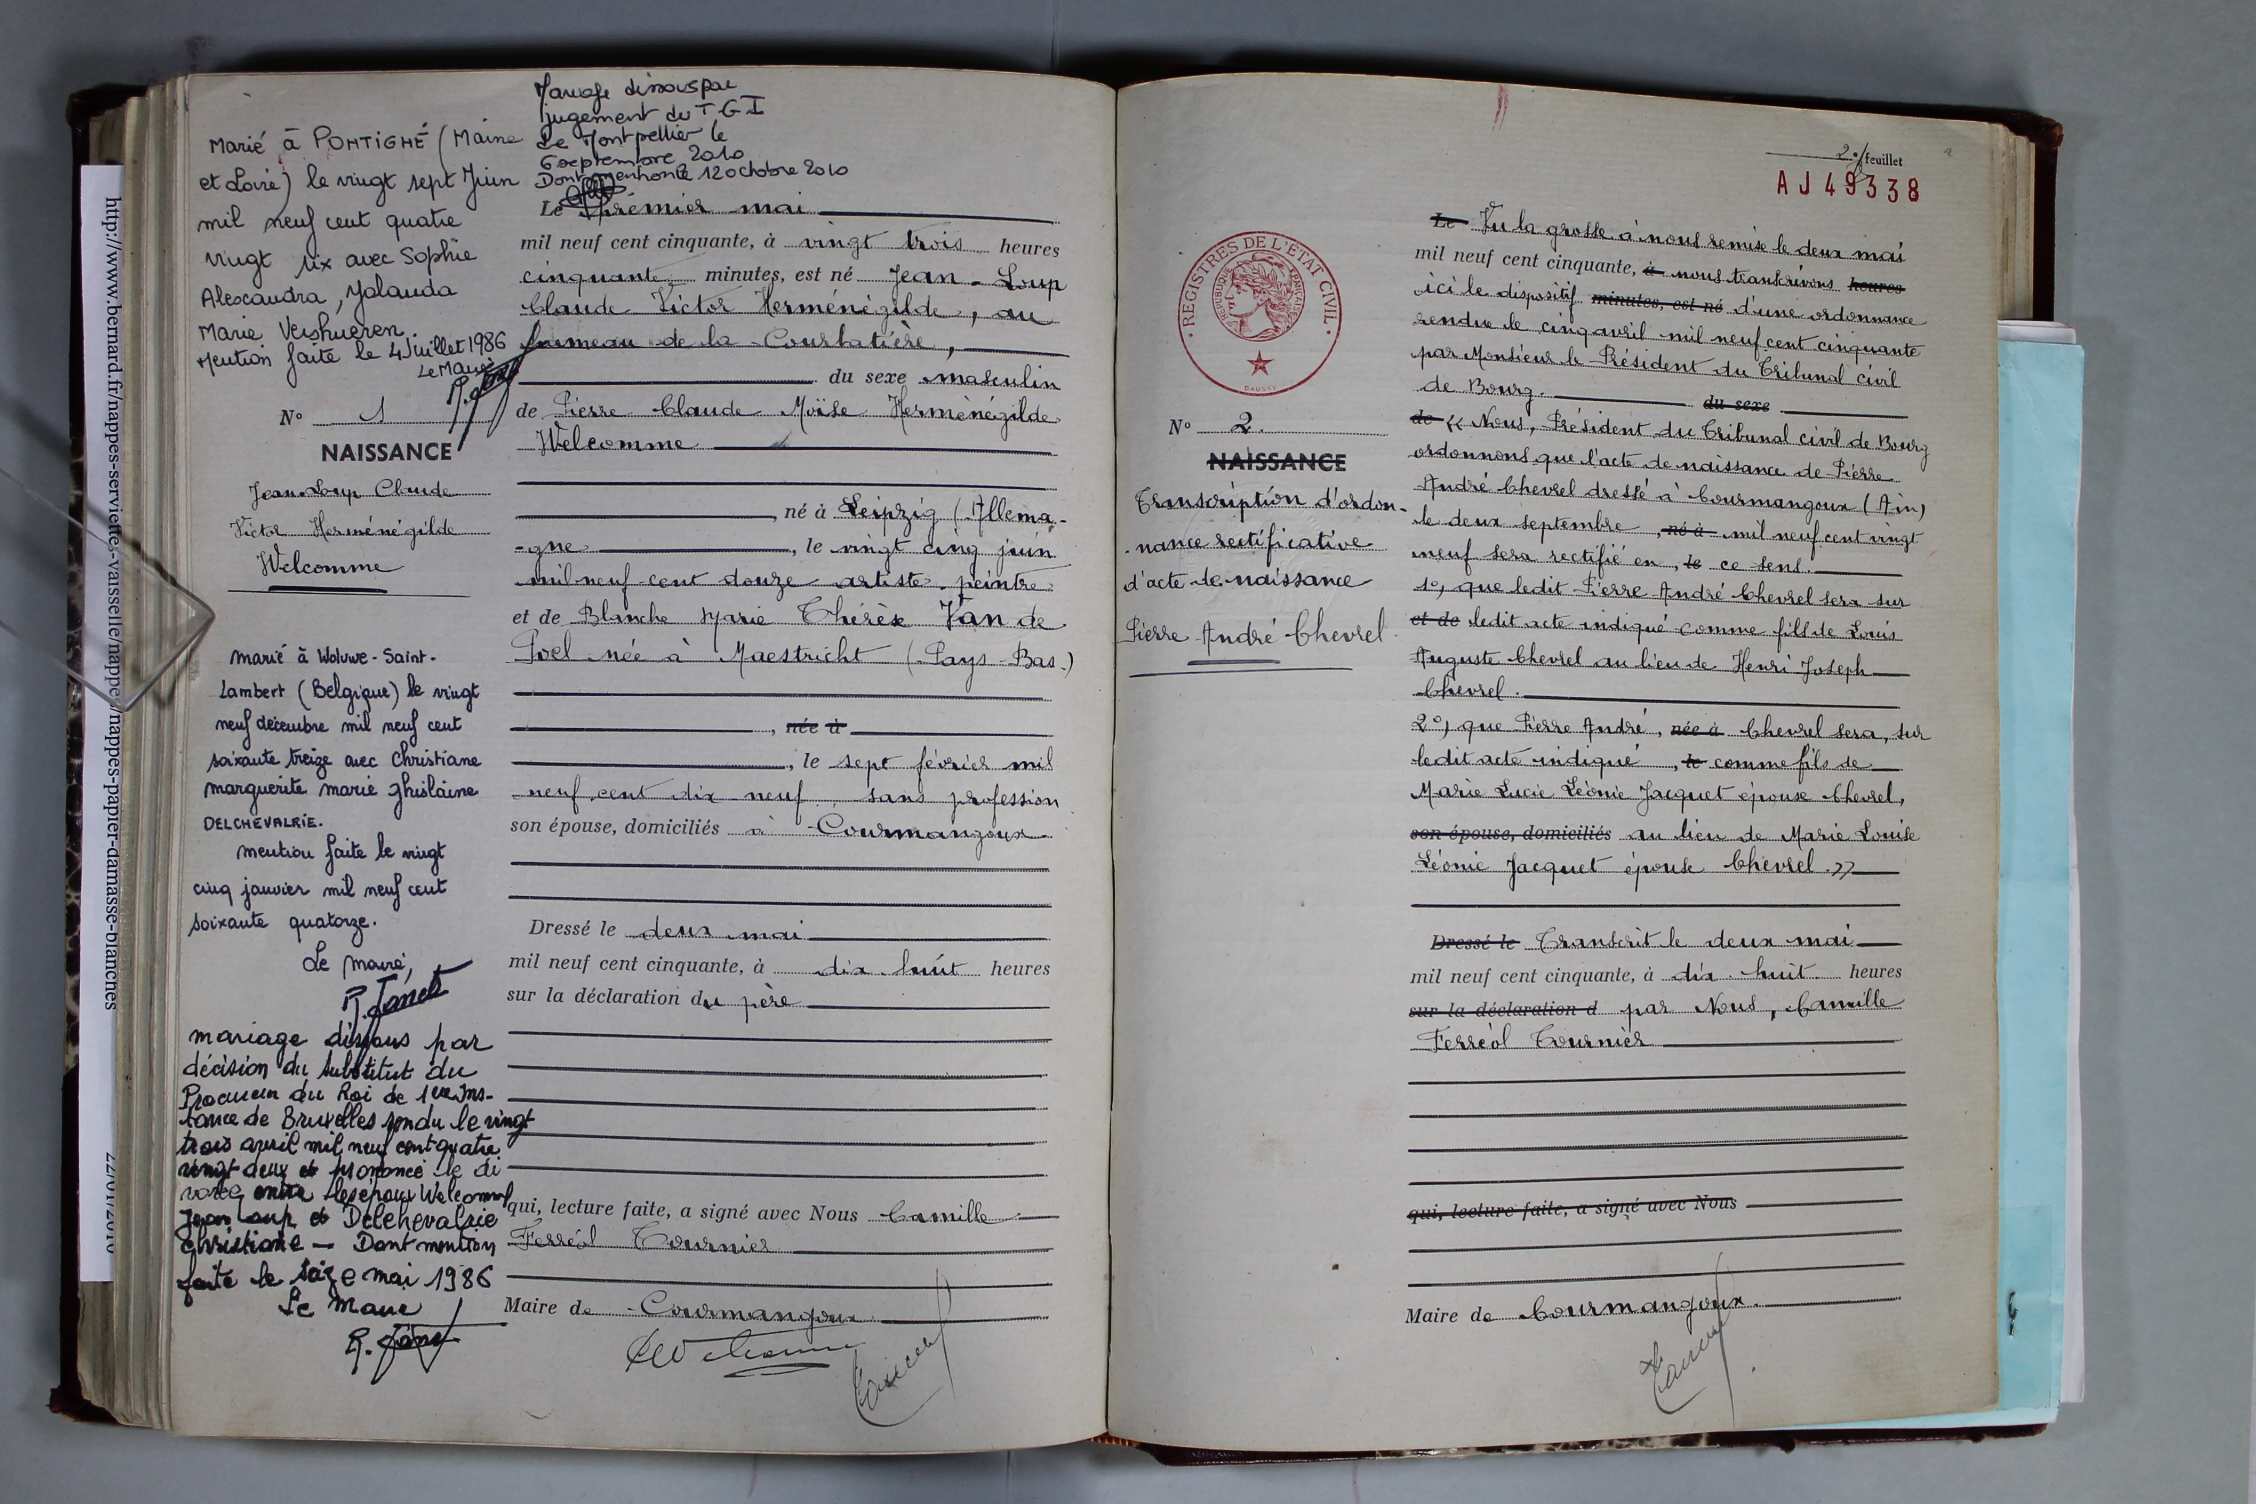 http://www.bernard.fr/nappes-serviettes-vaisselle/nappe/nappes-papier-damasse-blanches
Mariage dissous par
jugement du TGI
de Montpellier le
6 septembre 2010
Dont mention le 12 octobre 2010
Marié à PONTIGNÉ (Maine
et Loire) le vingt sept Juin
mil neuf cent quatre
vingt six avec Sophie
Alexandra, Yolanda
Marie Vershueren.
Mention faite le 4 Juillet 1986
Le Maire
N° 1
NAISSANCE
Jean-Loup Claude
Victor Herménégilde
Welcomme
marié à Woluwe-Saint-
Lambert (Belgique) le vingt
neuf décembre mil neuf cent
soixante treize avec Christiane
marguerite marie ghislaine
DELCHEVALRIE.
mention faite le vingt
cinq janvier mil neuf cent
soixante quatorze.
Le maire,
mariage dissous par
décision du substitut du
Procureur du Roi de 1ère Ins-
tance de Bruxelles rendu le vingt
trois avril mil neuf cent quatre
vingt deux et prononcé le di
vorce entre les époux Welcomme
Jean Loup et Delchevalrie
Christiane — Dont mention
faite le seize mai 1986
Le Maire
Le premier mai
mil neuf cent cinquante, à vingt trois heures
cinquante minutes, est né Jean-Loup
Claude Victor Herménégilde, au
hameau de la Courbatière,
du sexe masculin
de Pierre Claude Moïse Herménégilde
Welcomme
né à Leipzig (Allema-
-gne), le vingt cinq juin
mil neuf cent douze artiste peintre
et de Blanche Marie Thérèse Van de
Poel née à Maestricht (Pays-Bas)
, née à
, le sept février mil
neuf cent dix neuf, sans profession
son épouse, domiciliés à Courmangoux
Dressé le deux mai
mil neuf cent cinquante, à dix huit heures
sur la déclaration du père
qui, lecture faite, a signé avec Nous Camille
Ferréol Tournier
Maire de Courmangoux
2e feuillet
AJ49338
REGISTRES DE L'ÉTAT CIVIL
RÉPUBLIQUE FRANÇAISE
N° 2.
NAISSANCE
Transcription d'ordon-
nance rectificative
d'acte de naissance
Pierre André Chevrel
Le Vu la grosse à nous remise le deux mai
mil neuf cent cinquante, à nous transcrivons heures
ici le dispositif minutes, est né d'une ordonnance
rendue le cinq avril mil neuf cent cinquante
par Monsieur le Président du Tribunal civil
de Bourg. du sexe
de « Nous, Président du Tribunal civil de Bourg
ordonnons que l'acte de naissance de Pierre
André Chevrel dressé à Courmangoux (Ain)
le deux septembre, né à mil neuf cent vingt
neuf sera rectifié en, le ce sens.
1°, que ledit Pierre André Chevrel sera sur
et de ledit acte indiqué comme fils de Louis
Auguste Chevrel au lieu de Henri Joseph
Chevrel.
2°, que Pierre André, née à Chevrel sera, sur
ledit acte indiqué, le comme fils de
Marie Lucie Léonie Jacquet épouse Chevrel,
son épouse, domiciliés au lieu de Marie Louise
Léonie Jacquet épouse Chevrel. »
Dressé le Transcrit le deux mai
mil neuf cent cinquante, à dix huit heures
sur la déclaration d par Nous, Camille
Ferréol Tournier
qui, lecture faite, a signé avec Nous
Maire de Courmangoux